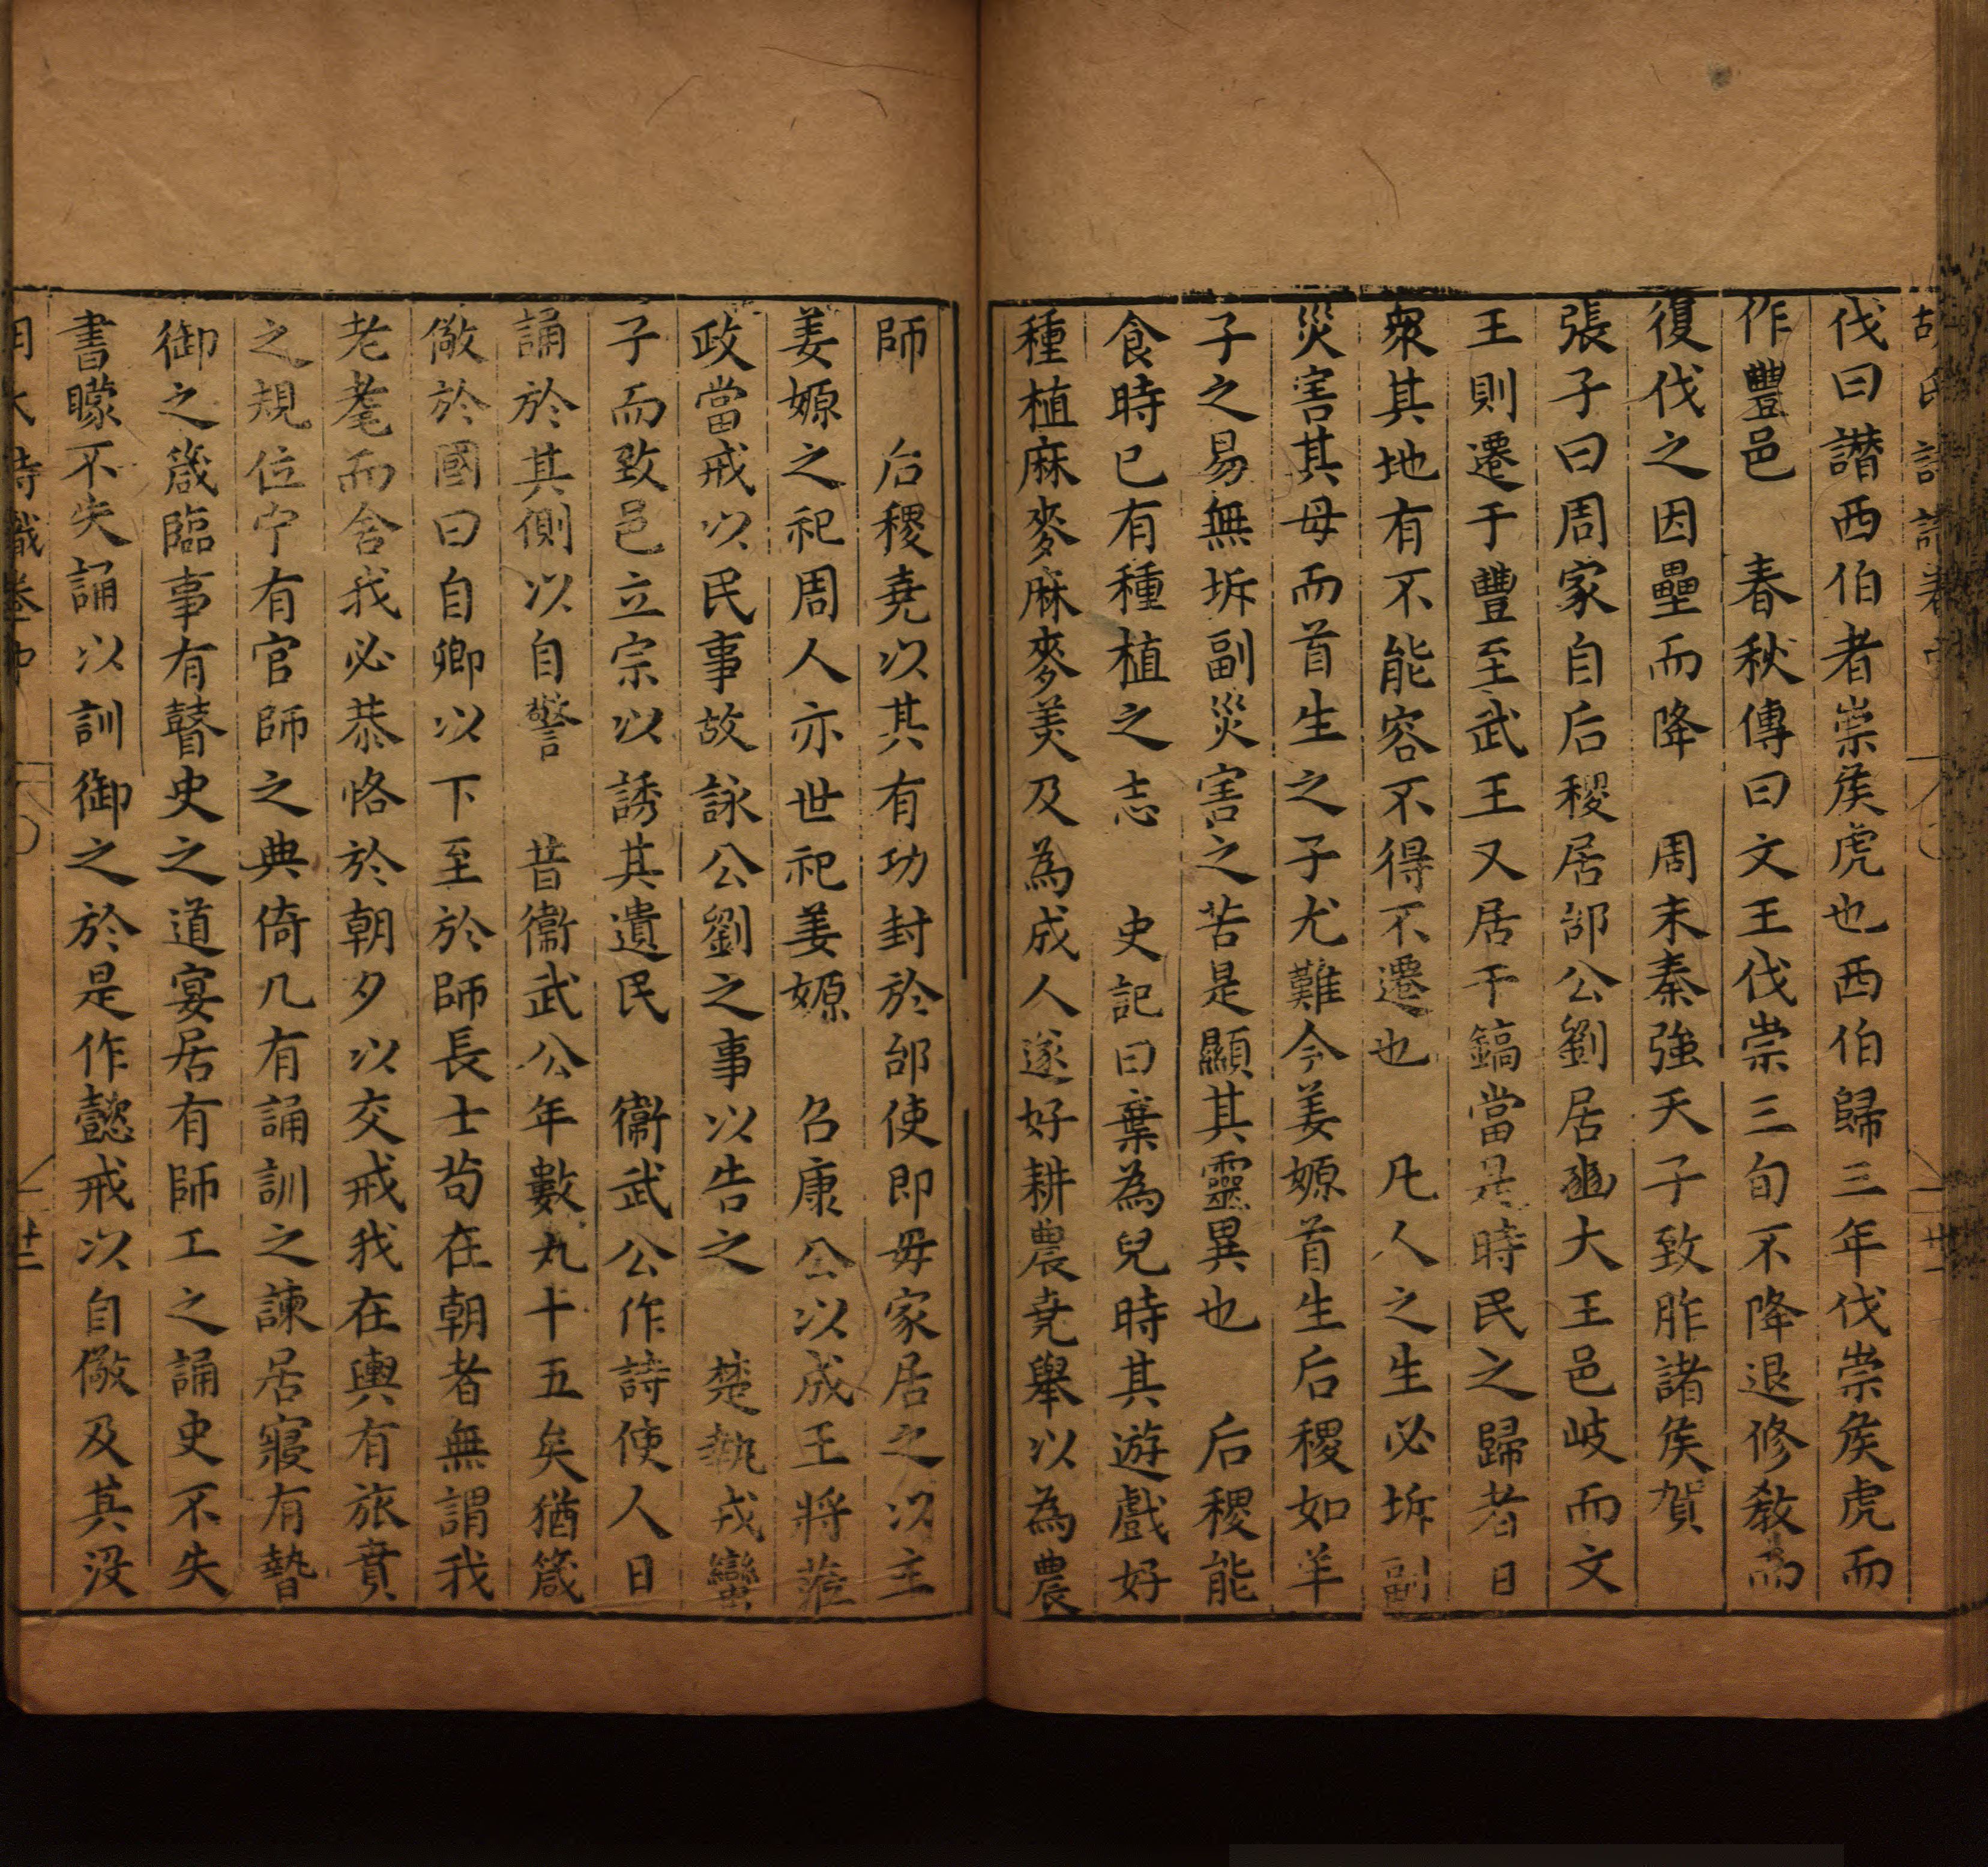 伐曰譖西伯者崇侯虎也西伯歸三年伐崇侯虎而
作豐邑　春秋傳曰文王伐崇三旬不降退修教而
復伐之因壘而降　周末秦強天子致胙諸侯賀
張子曰周家自后稷居邰公劉居豳大王邑岐而文
王則遷于豐至武王又居于鎬當是時民之歸者日
衆其地有不能容不得不遷也　凡人之生必坼副
災害其母而首生之子尤難今姜嫄首生后稷如羊
子之易無坼副災害之苦是顯其靈異也　后稷能
食時已有種植之志　史記曰棄為兒時其遊戲好
種植麻麥麻麥美及為成人遂好耕農堯舉以為農
師　后稷堯以其有功封於邰使即毋家居之以主
姜嫄之祀周人亦世祀姜嫄　召康公以成王將蒞
政當戒以民事故詠公劉之事以告之　楚執戎蠻
子而致邑立宗以誘其遺民　衞武公作詩使人日
誦於其側以自警　昔衞武公年數九十五矣猶箴
儆於國曰自卿以下至於師長士苟在朝者無謂我
老耄而舍我必恭恪於朝夕以交戒我在輿有旅賁
之規位宁有官師之典倚几有誦訓之諫居寢有暬
御之箴臨事有瞽史之道宴居有師工之誦史不失
書矇不失誦以訓御之於是作懿戒以自儆及其沒